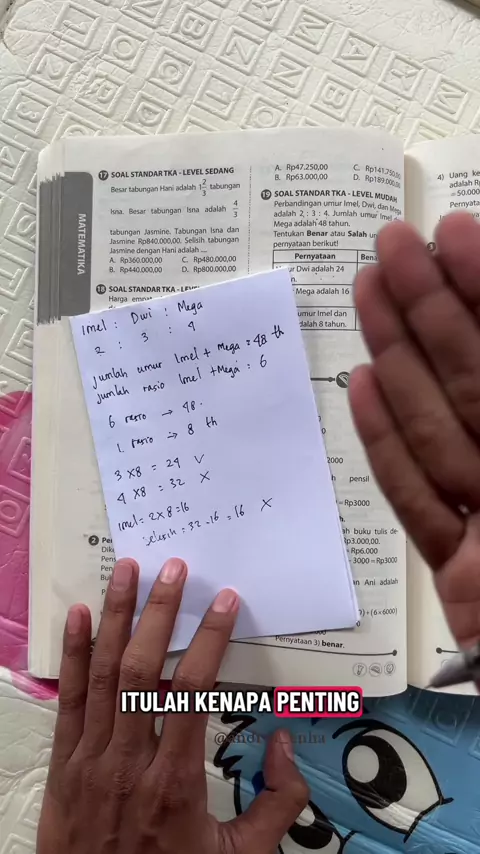 17 SOAL STANDAR TKA - LEVEL SEDANG
Besar tabungan Hani adalah 1 2/3 tabungan
Isna. Besar tabungan Isna adalah 4/3
tabungan Jasmine. Tabungan Isna dan
Jasmine Rp840.000,00. Selisih tabungan
Jasmine dengan Hani adalah ....
A. Rp360.000,00 C. Rp480.000,00
B. Rp440.000,00 D. Rp800.000,00
18 SOAL STANDAR TKA - LEVEL
Harga
MATEMATIKA
A. Rp47.250,00 C. Rp141.750,00
B. Rp63.000,00 D. Rp189.000,00
19 SOAL STANDAR TKA - LEVEL MUDAH
Perbandingan umur Imel, Dwi, dan Mega
adalah 2 : 3 : 4. Jumlah umur Imel
Mega adalah 48 tahun.
Tentukan Benar atau Salah
pernyataan berikut!
Pernyataan
Dwi adalah 24
Mega adalah 16
umur Imel dan
adalah 8 tahun.
4) Uang
adalah
= 50.000
Imel : Dwi : Mega
2 : 3 : 4
Jumlah umur Imel + Mega = 48 th
Jumlah rasio Imel + Mega = 6
6 rasio → 48.
1 rasio → 8 th
3 x 8 = 24 V
4 x 8 = 32 X
Imel = 2 x 8 = 16
selisih = 32 - 16 = 16 X
2000
pensil
= Rp3000
buku tulis
Rp3.000,00.
= Rp6.000
- 3000 = Rp3000
Ani adalah
+ (6×6000)
Pernyataan 3) benar.
2
ITULAH KENAPA PENTING